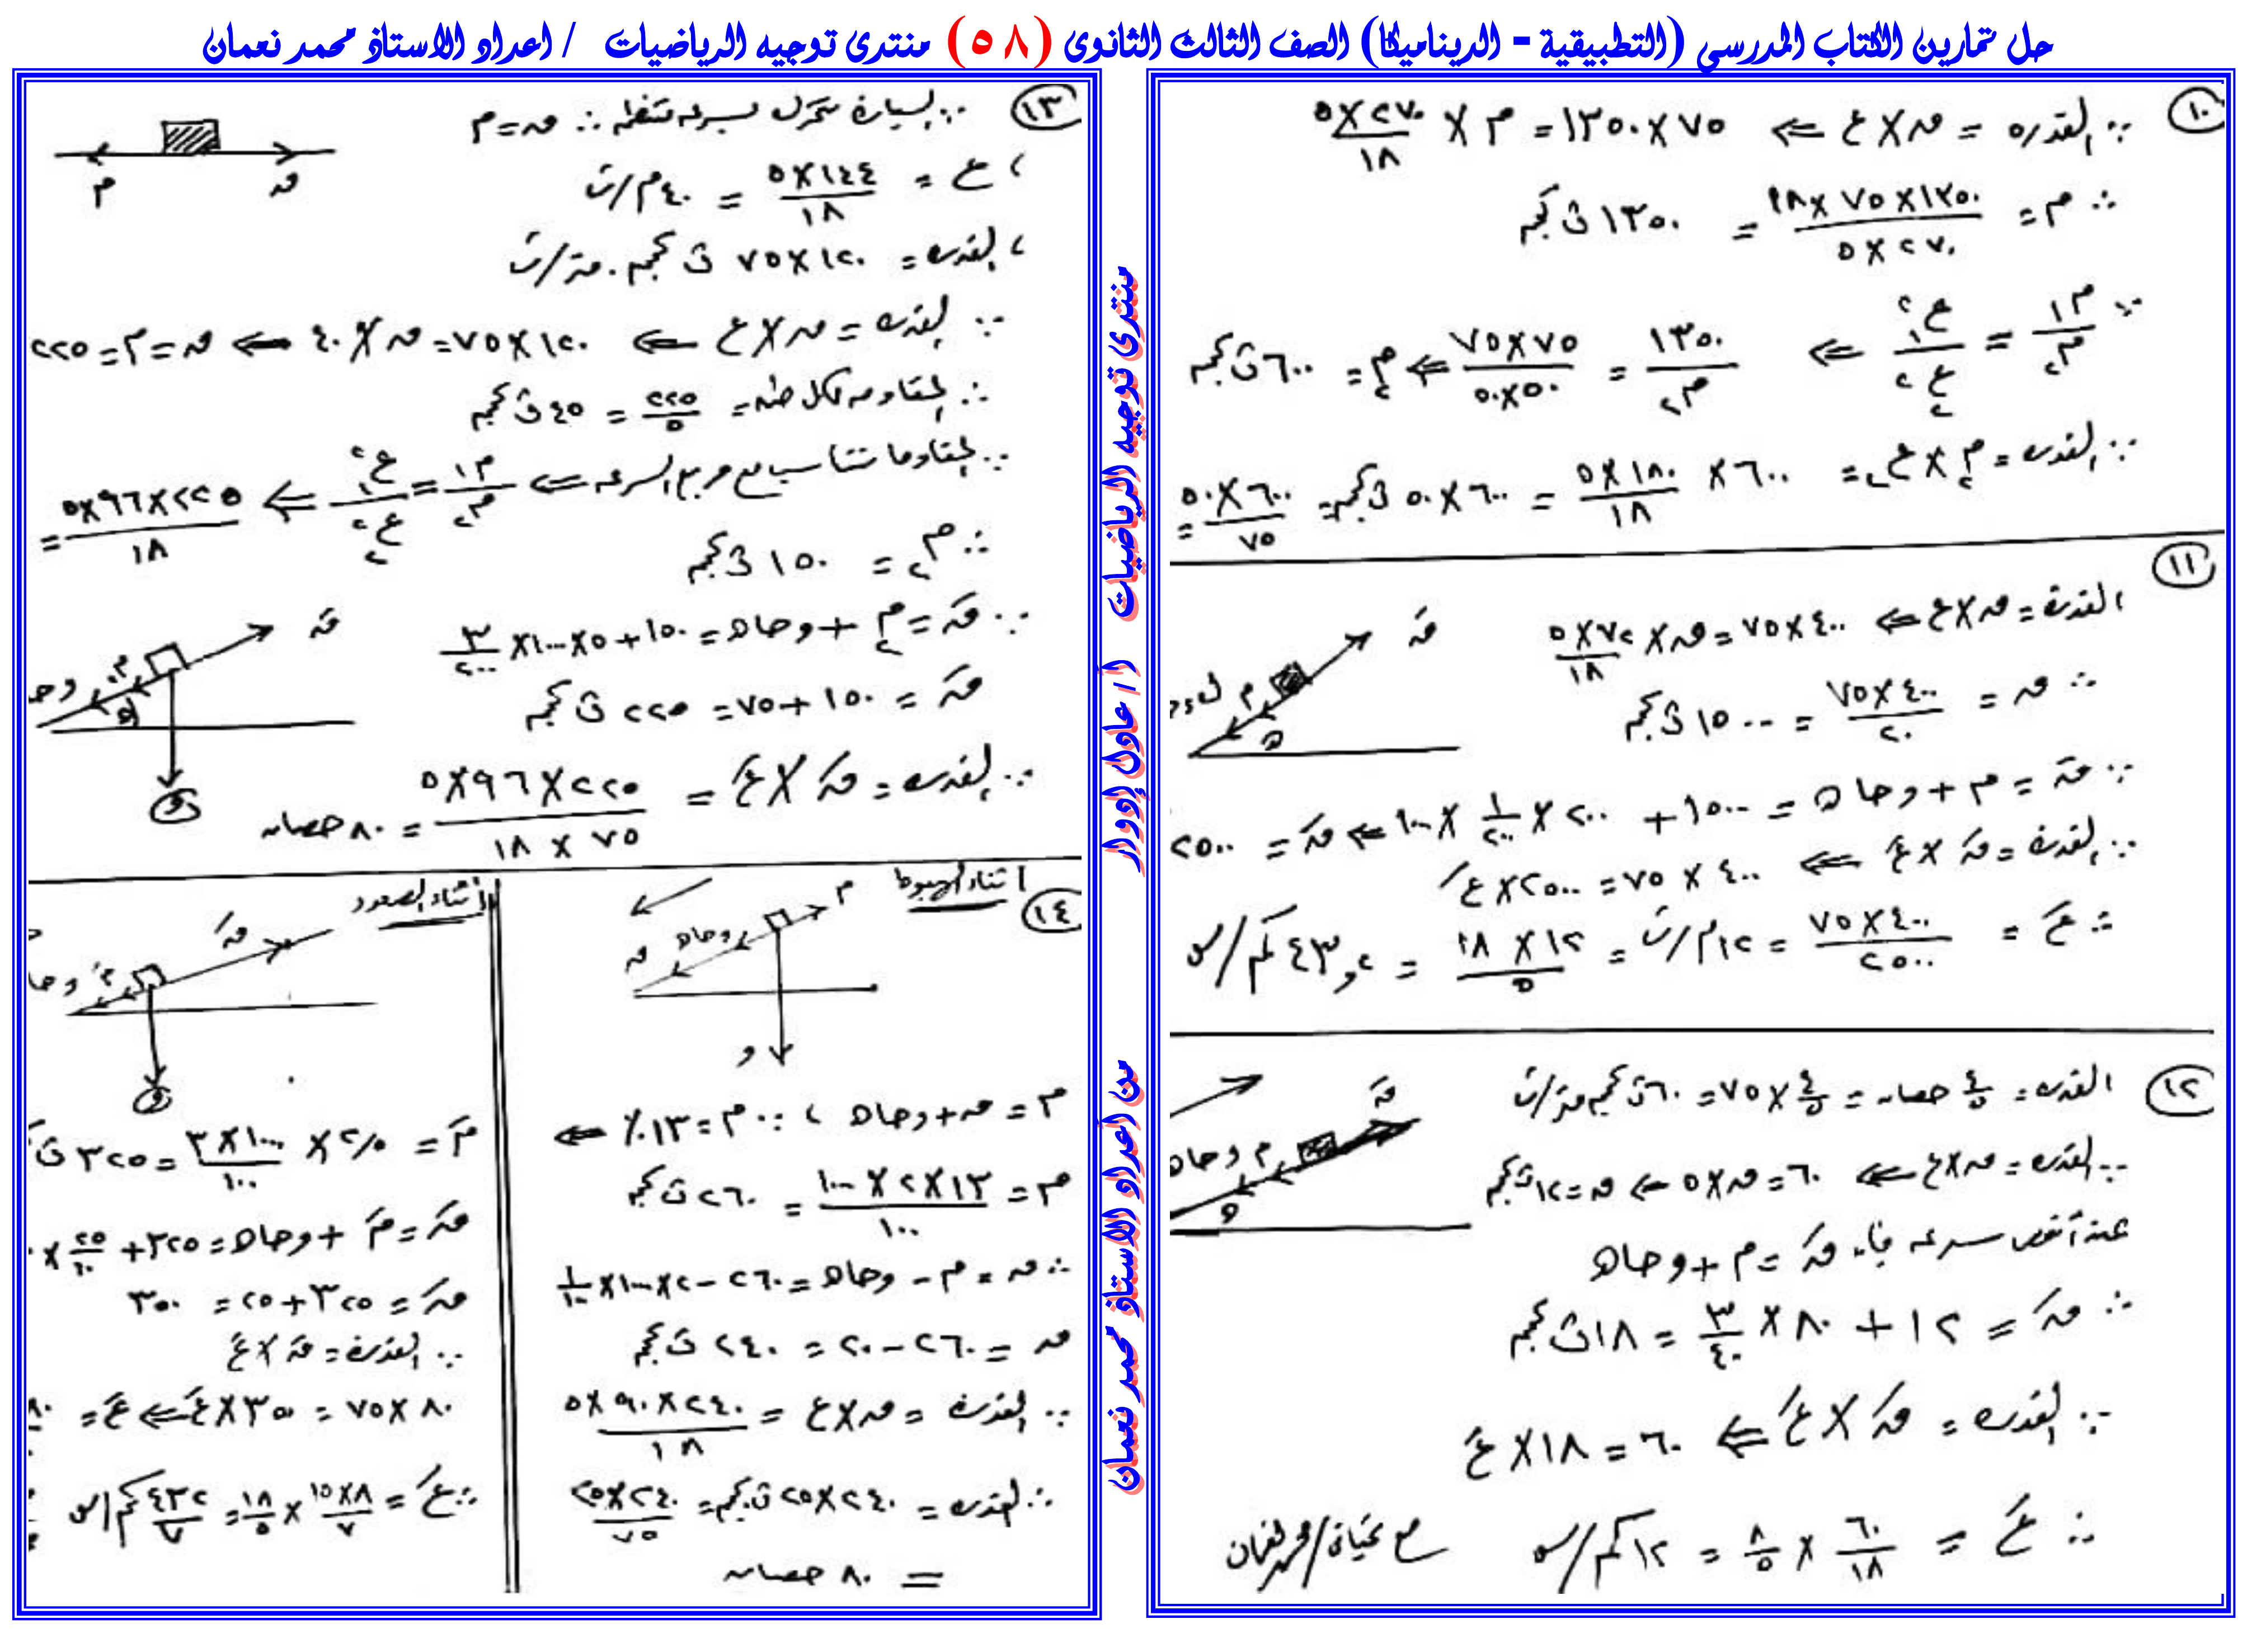 حل تمارين الكتاب المدرسي (التطبيقية - الديناميكا) الصف الثالث الثانوى (٥٨) منتدى توجيه الرياضيات / اعداد الاستاذ محمد نعمان
١٠
∵ القدره = ق × ع ⇐ ٧٥ × ١٣٥٠ = م × ٢٧٠×٥/١٨
∴ م = ١٣٥٠×٧٥×١٨/٢٧٠×٥ = ١٣٥٠ ث كجم
∵ م١/م٢ = ع١²/ع٢² ⇐ ١٣٥٠/م٢ = ٧٥×٧٥/٥٠×٥٠ ⇐ م٢ = ٦٠٠ ث كجم
∵ القدرة = م٢ × ع٢ = ٦٠٠ × ١٨٠×٥/١٨ = ٦٠٠×٥٠ ث كجم = ٦٠٠×٥٠/٧٥ =
١١
القدرة = ق × ع ⇐ ٤٠٠×٧٥ = ق × ٧٢×٥/١٨
∴ ق = ٤٠٠×٧٥/٢٠ = ١٥٠٠ ث كجم
∵ قَ = م + و جا هـ = ١٥٠٠ + ٢٠٠ × ١/٢٠٠ × ١٠٠٠ ⇐ قَ = ٢٥٠٠
∵ القدرة = قَ × عَ ⇐ ٤٠٠ × ٧٥ = ٢٥٠٠ × عَ
∴ عَ = ٤٠٠×٧٥/٢٥٠٠ = ١٢ م/ث = ١٢×١٨/٥ = ٤٣,٢ كم/س
قَ
م
هـ
١٢
القدرة = ٤/٥ حصان = ٤/٥ × ٧٥ = ٦٠ ث كجم متر/ث
∵ القدرة = ق × ع ⇐ ٦٠ = ق × ٥ ⇐ ق = ١٢ ث كجم
عند أقصى سرعه فإن قَ = م + و جا هـ
∴ قَ = ١٢ + ٨٠ × ٣/٤٠ = ١٨ ث كجم
∵ القدرة = قَ × عَ ⇐ ٦٠ = ١٨ × عَ
∴ عَ = ٦٠/١٨ × ١٨/٥ = ١٢ كم/س
قَ
م و جا هـ
هـ
مع تحيات / محمد نعمان
١٣
∵ السيارة تتحرك بسرعه منتظمه ∴ ق = م
، ع = ١٤٤×٥/١٨ = ٤٠ م/ث
، القدرة = ١٢٠×٧٥ ث كجم . متر/ث
∵ القدرة = ق × ع ⇐ ١٢٠×٧٥ = ق × ٤٠ ⇐ ق = م = ٢٢٥
∴ المقاومه لكل طن = ٢٢٥/٥ = ٤٥ ث كجم
∵ المقاومة تتناسب مع مربع السرعه ⇐ م١/م٢ = ع١²/ع٢² ⇐ ٢٢٥×٩٦×٥/١٨ =
∴ م٢ = ١٥٠ ث كجم
∵ قَ = م٢ + و جا هـ = ١٥٠ + ٥×١٠٠٠×٣/٢٠٠
قَ = ١٥٠ + ٧٥ = ٢٢٥ ث كجم
∵ القدرة = قَ × عَ = ٢٢٥×٩٦×٥/٧٥×١٨ = ٨٠ حصان
ق
م
قَ
و
١٤
أثناء الهبوط
م
و جا هـ
ق
و
م = ق + و جا هـ ، ∵ م = ١٣٪ ⇐
م = ١٣×٢×١٠٠٠/١٠٠ = ٢٦٠ ث كجم
∴ ق = م - و جا هـ = ٢٦٠ - ٢×١٠٠٠×١/١٠٠
ق = ٢٦٠ - ٢٠ = ٢٤٠ ث كجم
∵ القدرة = ق × ع = ٢٤٠×٩٠×٥/١٨
∴ القدرة = ٢٤٠×٢٥ ث كجم = ٢٤٠×٢٥/٧٥
= ٨٠ حصان
أثناء الصعود
قَ
و
قَ = مَ + و جا هـ = ٣٢٥ +
قَ = ٣٢٥ + ٢٥ = ٣٥٠
∵ القدرة = قَ × عَ
٨٠ × ٧٥ = ٣٥٠ × عَ ⇐ عَ =
∴ عَ = ٨×١٥/٧ × ١٨/٥ = ٤٣٢/٧ كم/س
منتدى توجيه الرياضيات أ / عادل إدوار
من اعداد الاستاذ محمد نعمان